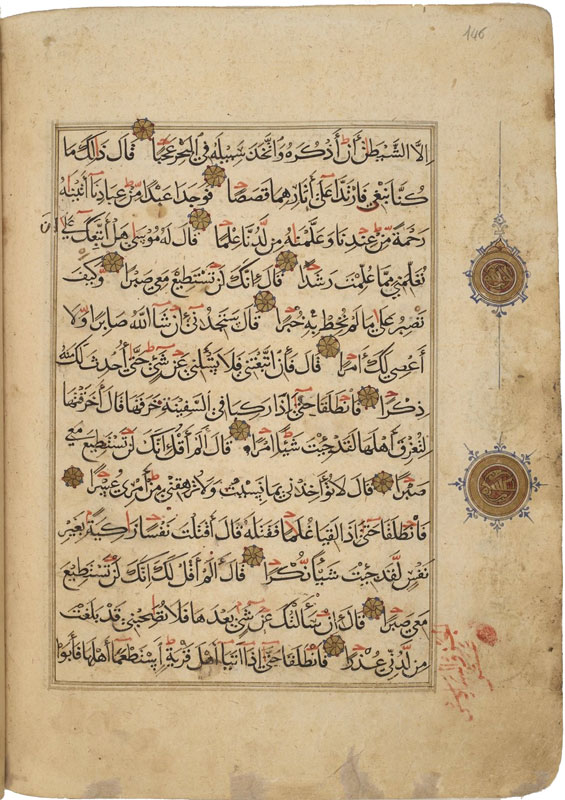 146
إلا الشيطن أن أذكره واتخذ سبيله في البحر عجبا قال ذلك ما
كنا نبغي فارتدا على آثارهما قصصا فوجدا عبدا من عبادنا آتينه
رحمة من عندنا وعلمنه من لدنا علما قال له موسى هل أتبعك على أن
تعلمني مما علمت رشدا قال إنك لن تستطيع معي صبرا وكيف
تصبر على ما لم تحط به خبرا قال ستجدني إن شا الله صابرا ولا
أعصي لك أمرا قال فإن اتبعتني فلا تسئلني عن شي حتى أحدث لك منه
ذكرا فانطلقا حتى إذا ركبا في السفينة خرقها قال أخرقتها
لتغرق أهلها لقد جئت شيئا إمرا قال ألم أقل إنك لن تستطيع معي
صبرا قال لا تؤاخذني بما نسيت ولا ترهقني من أمري عسرا
فانطلقا حتى إذا لقيا غلما فقتله قال أقتلت نفسا زاكية بغير
نفس لقد جئت شيئا نكرا قال ألم أقل لك إنك لن تستطيع
معي صبرا قال إن سألتك عن شي بعدها فلا تصحبني قد بلغت
من لدني عذرا فانطلقا حتى إذا أتيا أهل قرية استطعما أهلها فأبوا